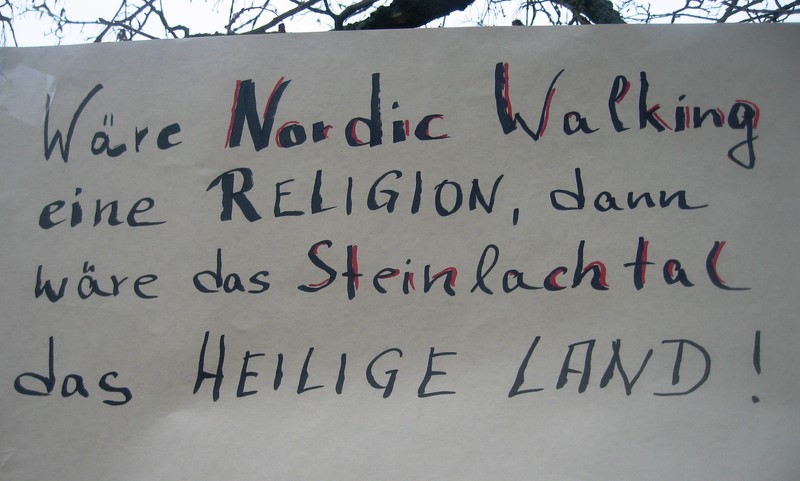 Wäre Nordic Walking
eine RELIGION, dann
wäre das Steinlachtal
das HEILIGE LAND!